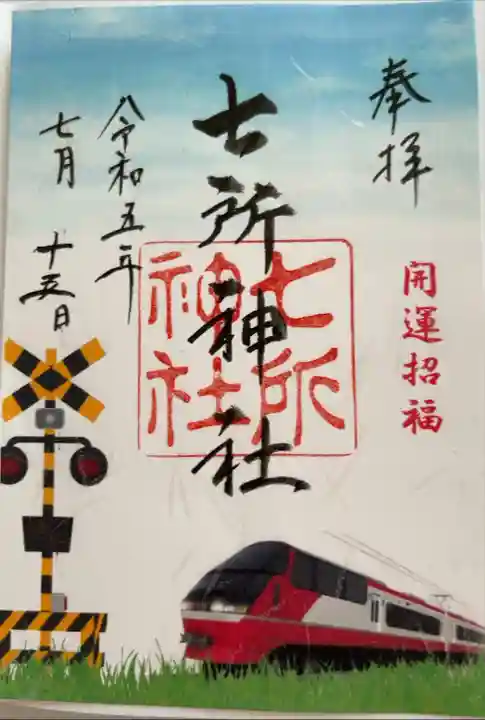 奉拝
開運招福
七所神社
七所
神社
令和五年
七月 十五日